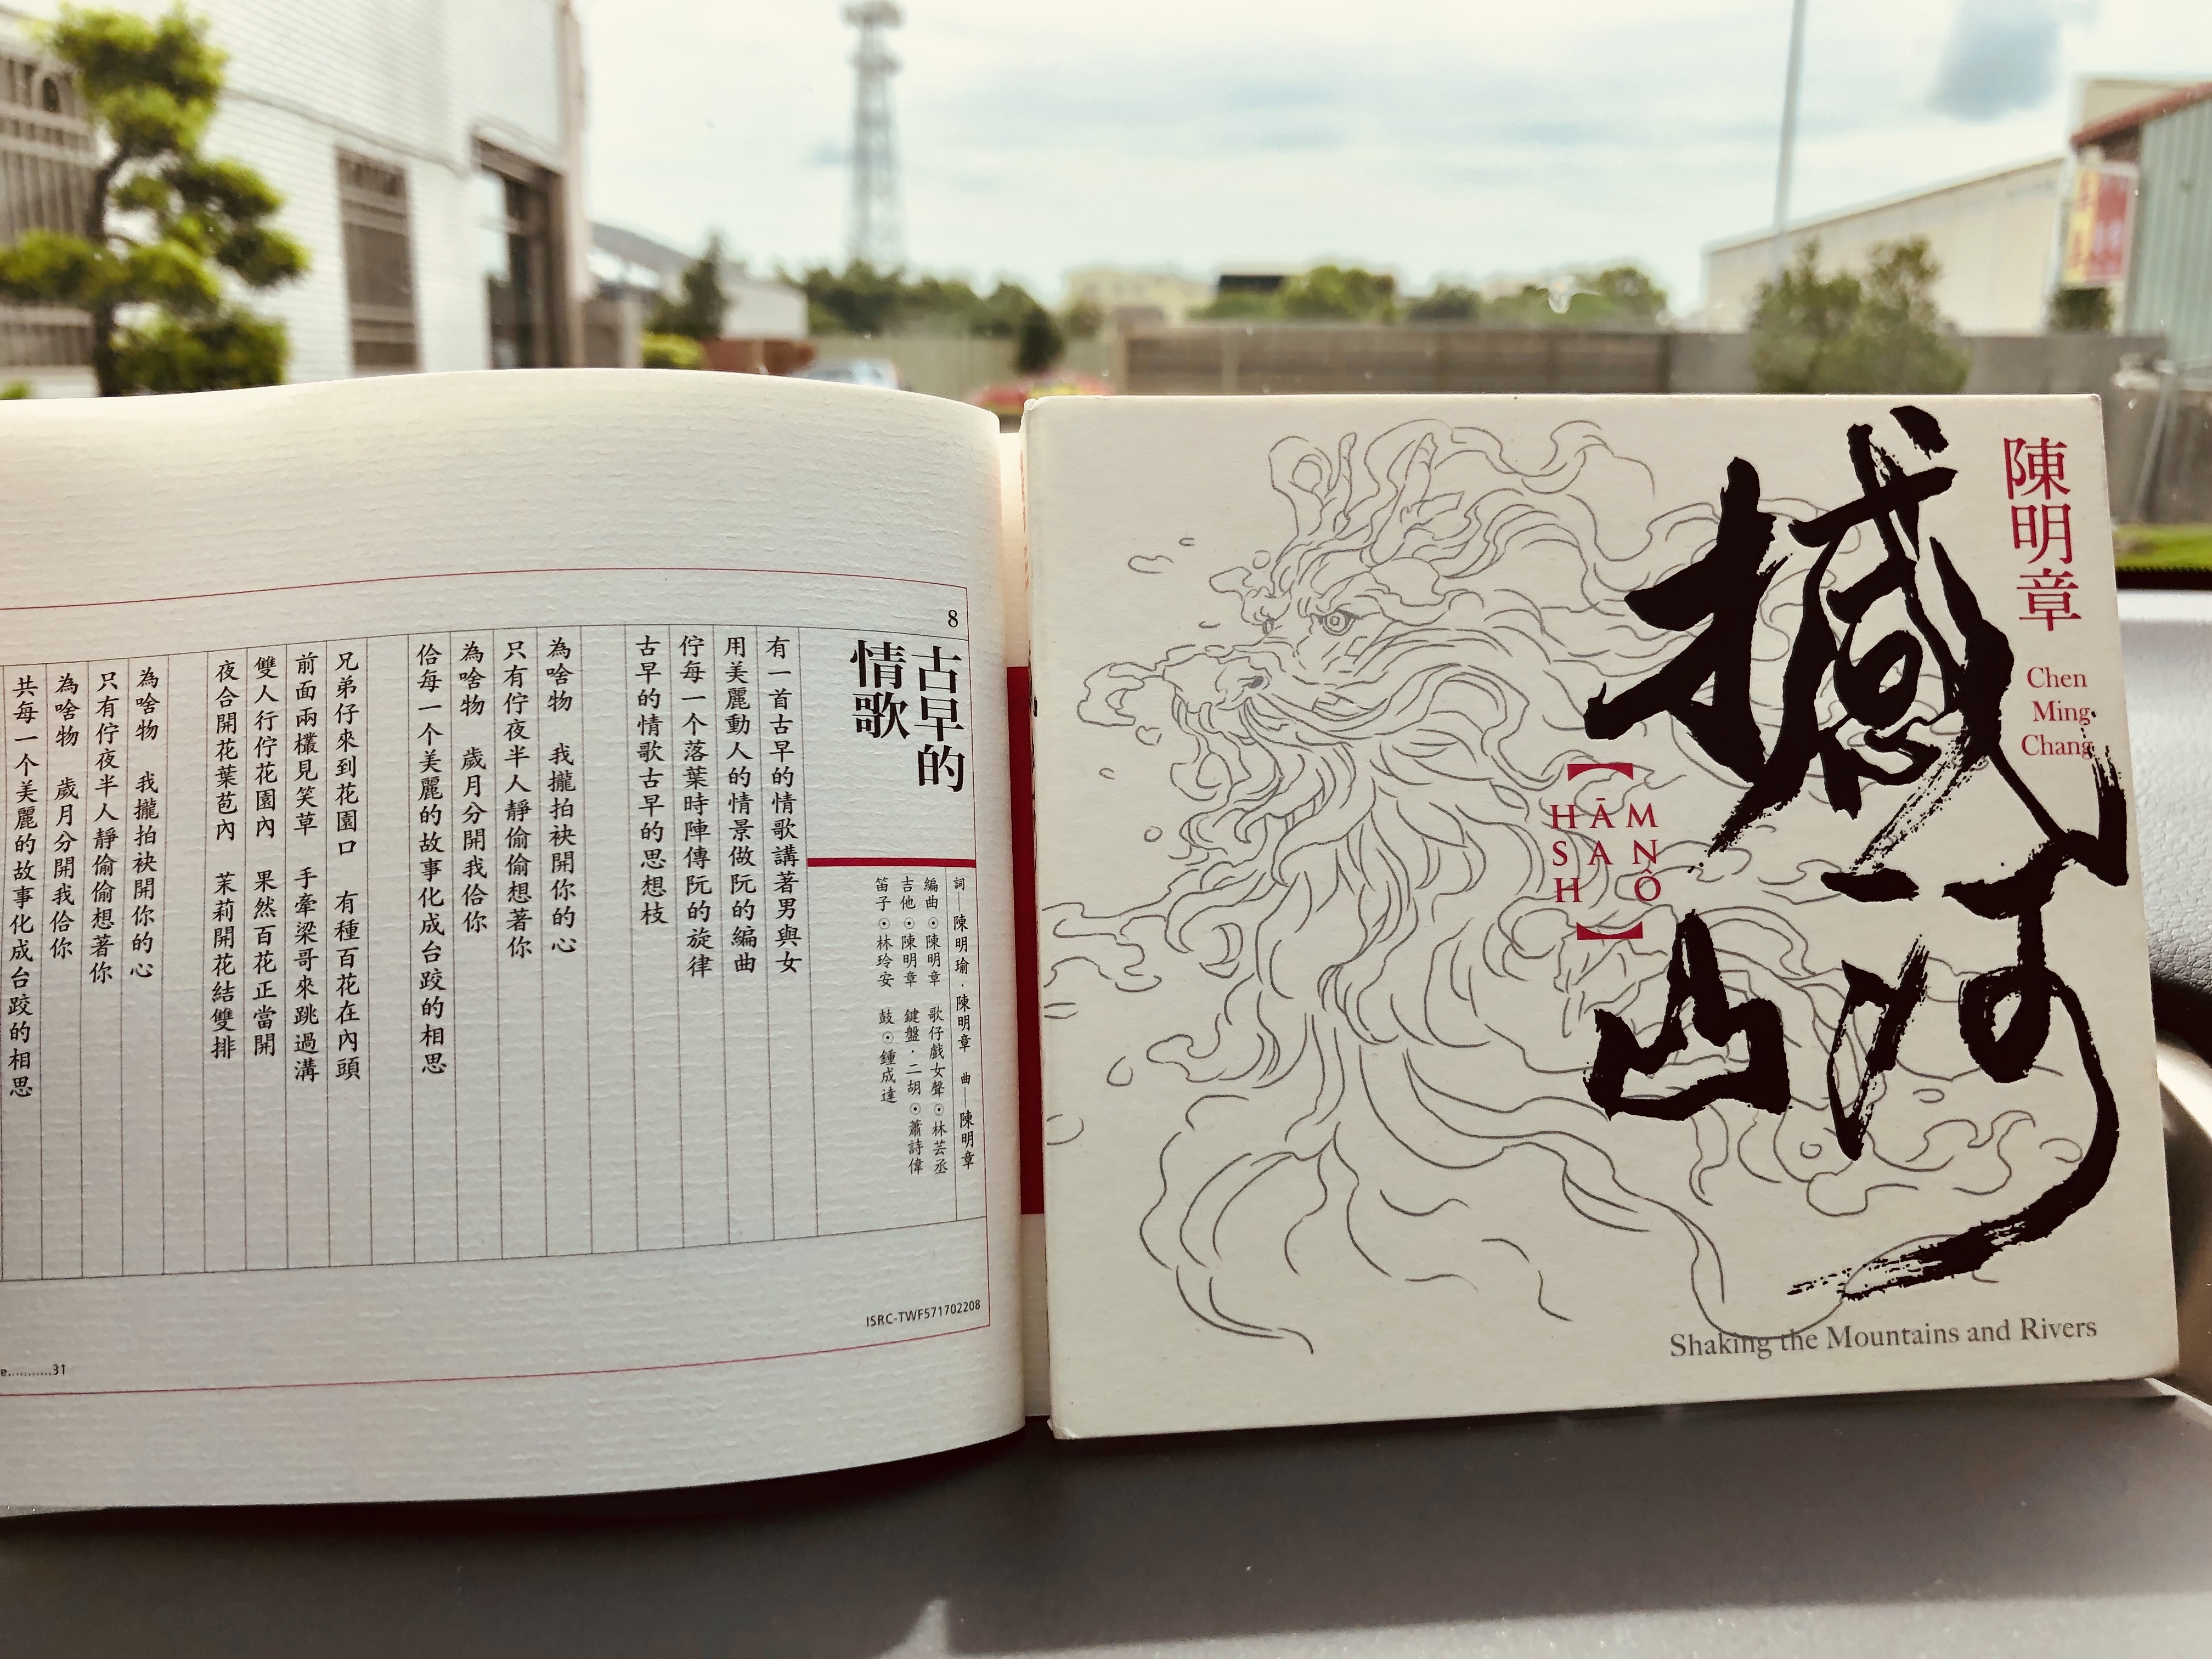 8
古早的
情歌
詞—陳明瑜．陳明章　曲—陳明章
編曲⊙陳明章　歌仔戲女聲⊙林芸丞
吉他⊙陳明章　鍵盤．二胡⊙蕭詩偉
笛子⊙林玲安　鼓⊙鍾成達
有一首古早的情歌講著男與女
用美麗動人的情景做阮的編曲
佇每一个落葉時陣傳阮的旋律
古早的情歌古早的思想枝
為啥物　我攏拍袂開你的心
只有佇夜半人靜偷偷想著你
為啥物　歲月分開我佮你
佮每一个美麗的故事化成台跤的相思
兄弟仔來到花園口　有種百花在內頭
前面兩欉見笑草　手牽梁哥來跳過溝
雙人行佇花園內　果然百花正當開
夜合開花葉苞內　茉莉開花結雙排
為啥物　我攏拍袂開你的心
只有佇夜半人靜偷偷想著你
為啥物　歲月分開我佮你
共每一个美麗的故事化成台跤的相思
ISRC-TWF571702208
e...........31
陳明章
Chen
Ming
Chang
撼山河
【HĀM
SAN
HÔ】
Shaking the Mountains and Rivers